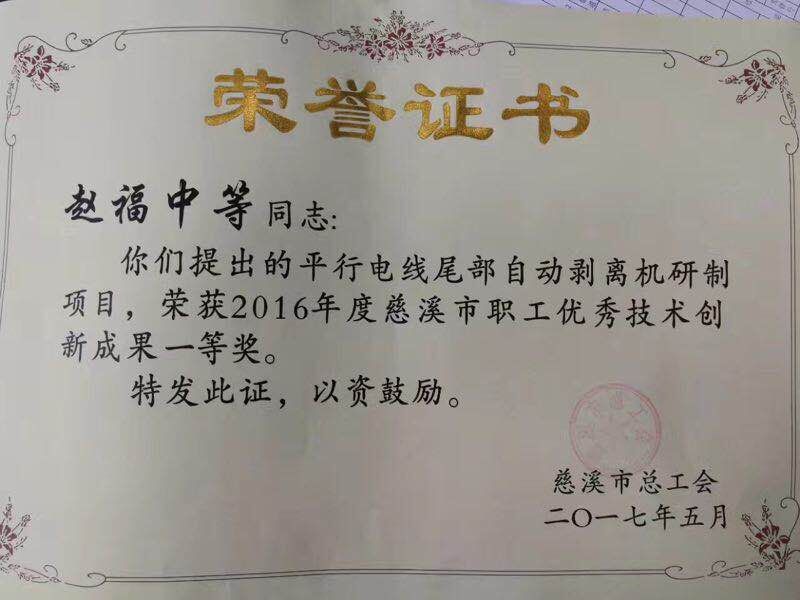 荣誉证书
赵福中等同志:
你们提出的平行电线尾部自动剥离机研制
项目，荣获2016年度慈溪市职工优秀技术创
新成果一等奖。
特发此证，以资鼓励。
慈溪市总工会
二〇一七年五月